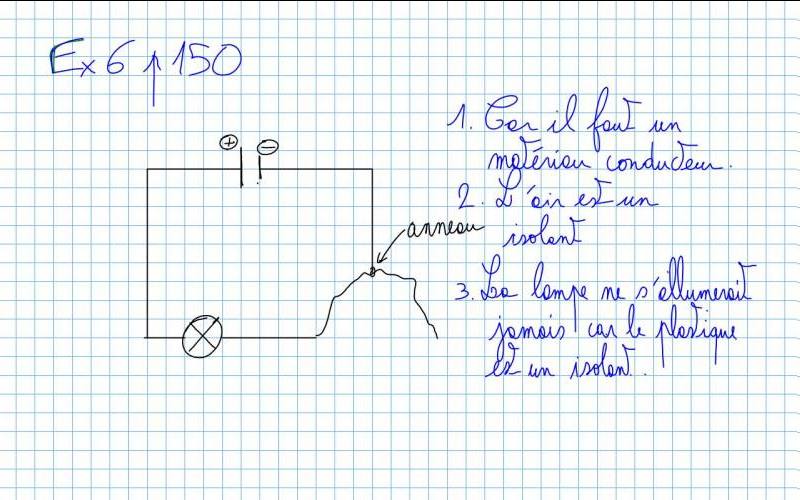 Ex 6 p 150
⊕ ⊖
anneau
1. Car il faut un
matériau conducteur.
2. L'air est un
isolant
3. La lampe ne s'allumerait
jamais car le plastique
est un isolant.